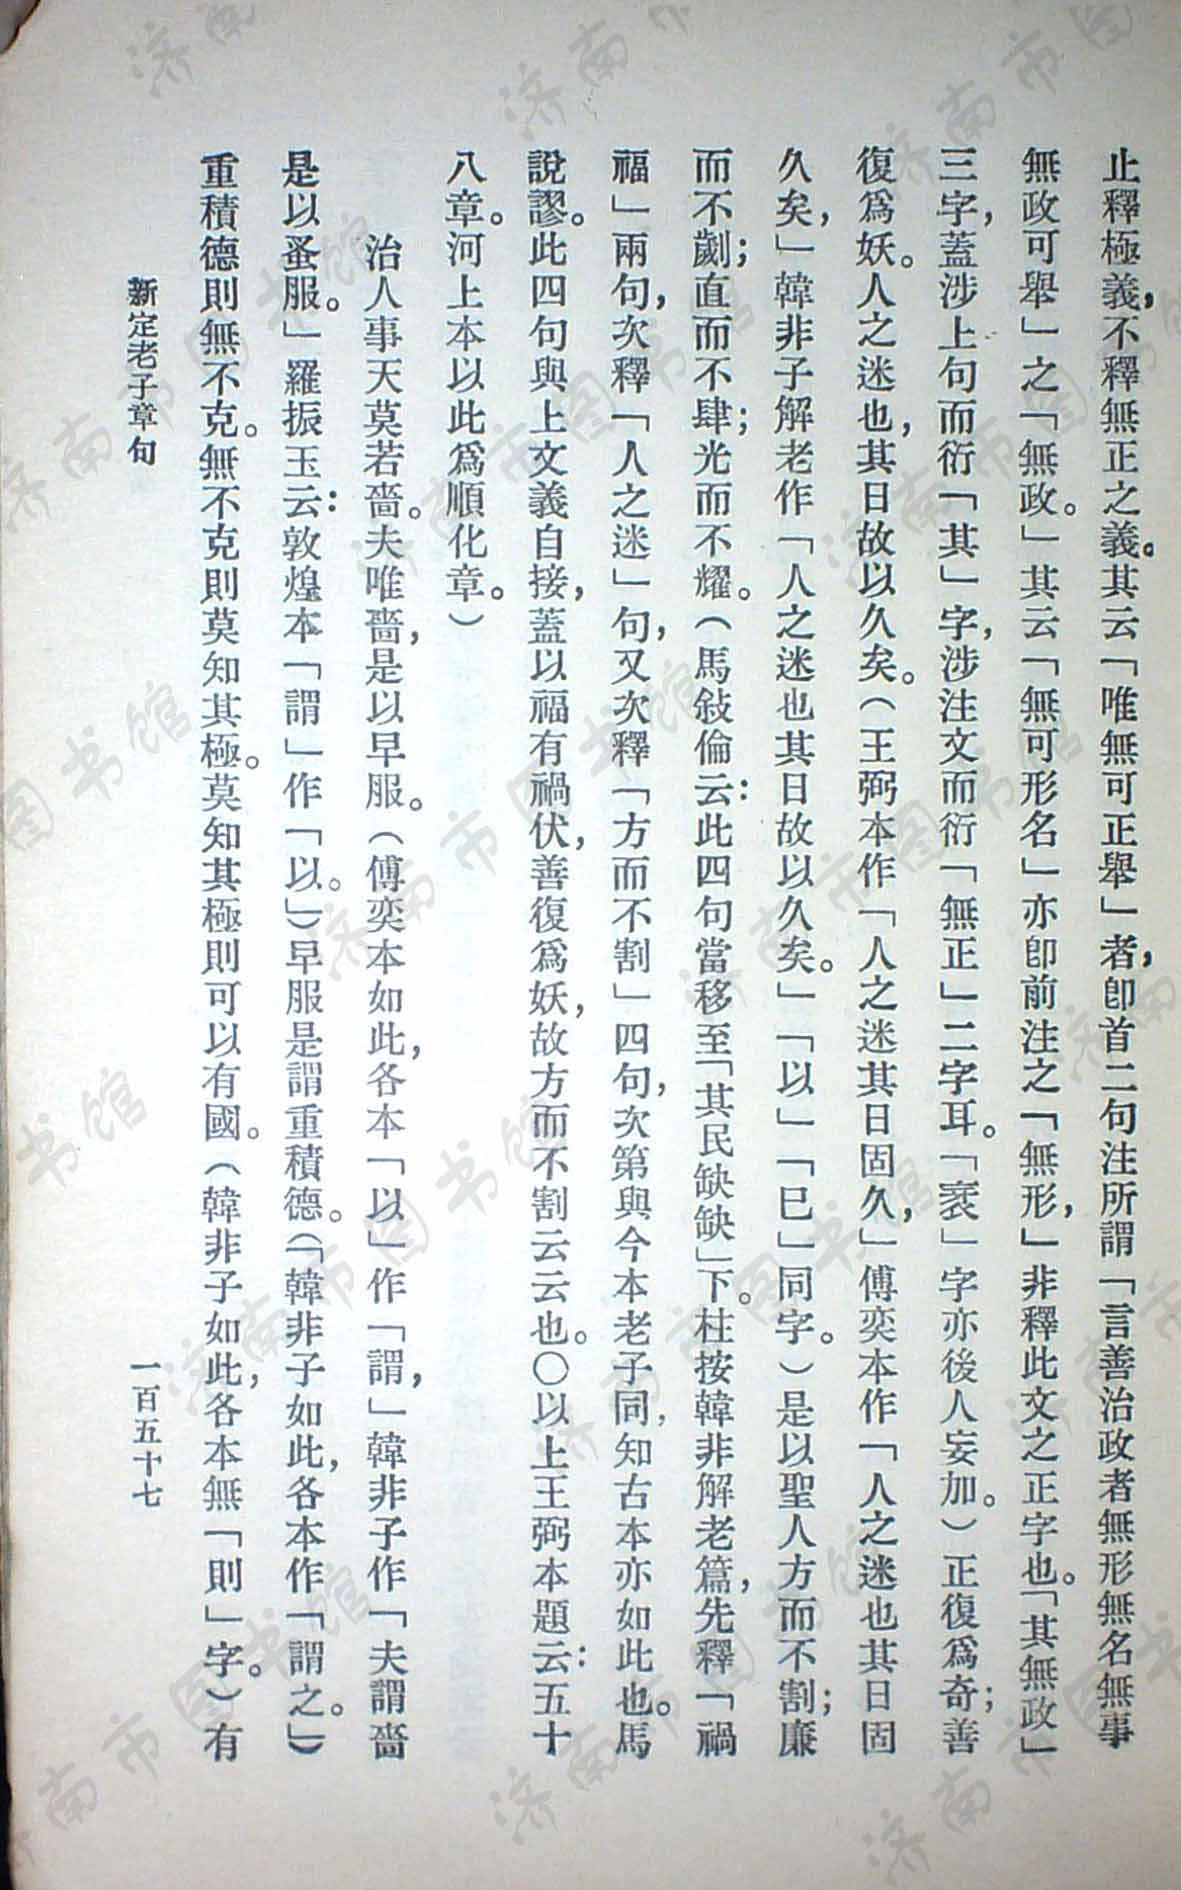 止釋極義，不釋無正之義。其云「唯無可正舉」者，卽首二句注所謂「言善治政者無形無名無事
無政可舉」之「無政。」其云「無可形名」亦卽前注之「無形，」非釋此文之正字也。「其無政」
三字，蓋涉上句而衍「其」字，涉注文而衍「無正」二字耳。「衺」字亦後人妄加。）正復爲奇；善
復爲妖。人之迷也，其日故以久矣。（王弼本作「人之迷其日固久，」傅奕本作「人之迷也其日固
久矣，」韓非子解老作「人之迷也其日故以久矣。」「以」「已」同字。）是以聖人方而不割；廉
而不劌；直而不肆；光而不耀。（馬敍倫云：此四句當移至「其民缺缺」下。柱按韓非解老篇，先釋「禍
福」兩句，次釋「人之迷」句，又次釋「方而不割」四句，次第與今本老子同，知古本亦如此也。馬
說謬。此四句與上文義自接，蓋以福有禍伏，善復爲妖，故方而不割云云也。〇以上王弼本題云：五十
八章。河上本以此爲順化章。）
治人事天莫若嗇。夫唯嗇，是以早服。（傅奕本如此，各本「以」作「謂，」韓非子作「夫謂嗇
是以蚤服。」羅振玉云：敦煌本「謂」作「以。」）早服是謂重積德。（「韓非子如此，各本作「謂之。」）
重積德則無不克。無不克則莫知其極。莫知其極則可以有國。（韓非子如此，各本無「則」字。）有
新定老子章句
一百五十七
济南市图书馆